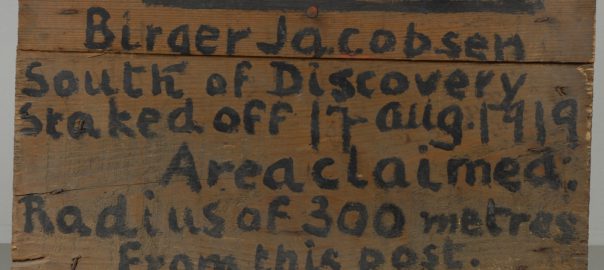 Birger Jacobsen
South of Discovery
Staked off 17 aug. 1919
Area claimed:
Radius of 300 metres
From this post.